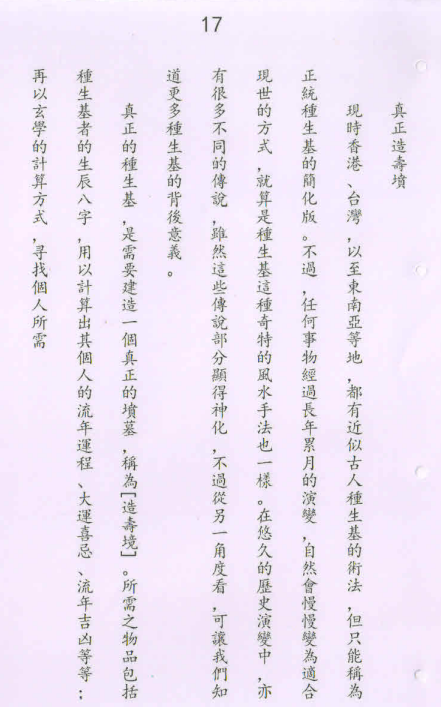 17
真正造壽墳
現時香港、台灣,以至東南亞等地,都有近似古人種生基的術法,但只能稱為
正統種生基的簡化版。不過,任何事物經過長年累月的演變,自然會慢慢變為適合
現世的方式,就算是種生基這種奇特的風水手法也一樣。在悠久的歷史演變中,亦
有很多不同的傳說,雖然這些傳說部分顯得神化,不過從另一角度看,可讓我們知
道更多種生基的背後意義。
真正的種生基,是需要建造一個真正的墳墓,稱為[造壽境]。所需之物品包括
種生基者的生辰八字,用以計算出其個人的流年運程、大運喜忌、流年吉凶等等;
再以玄學的計算方式,尋找個人所需